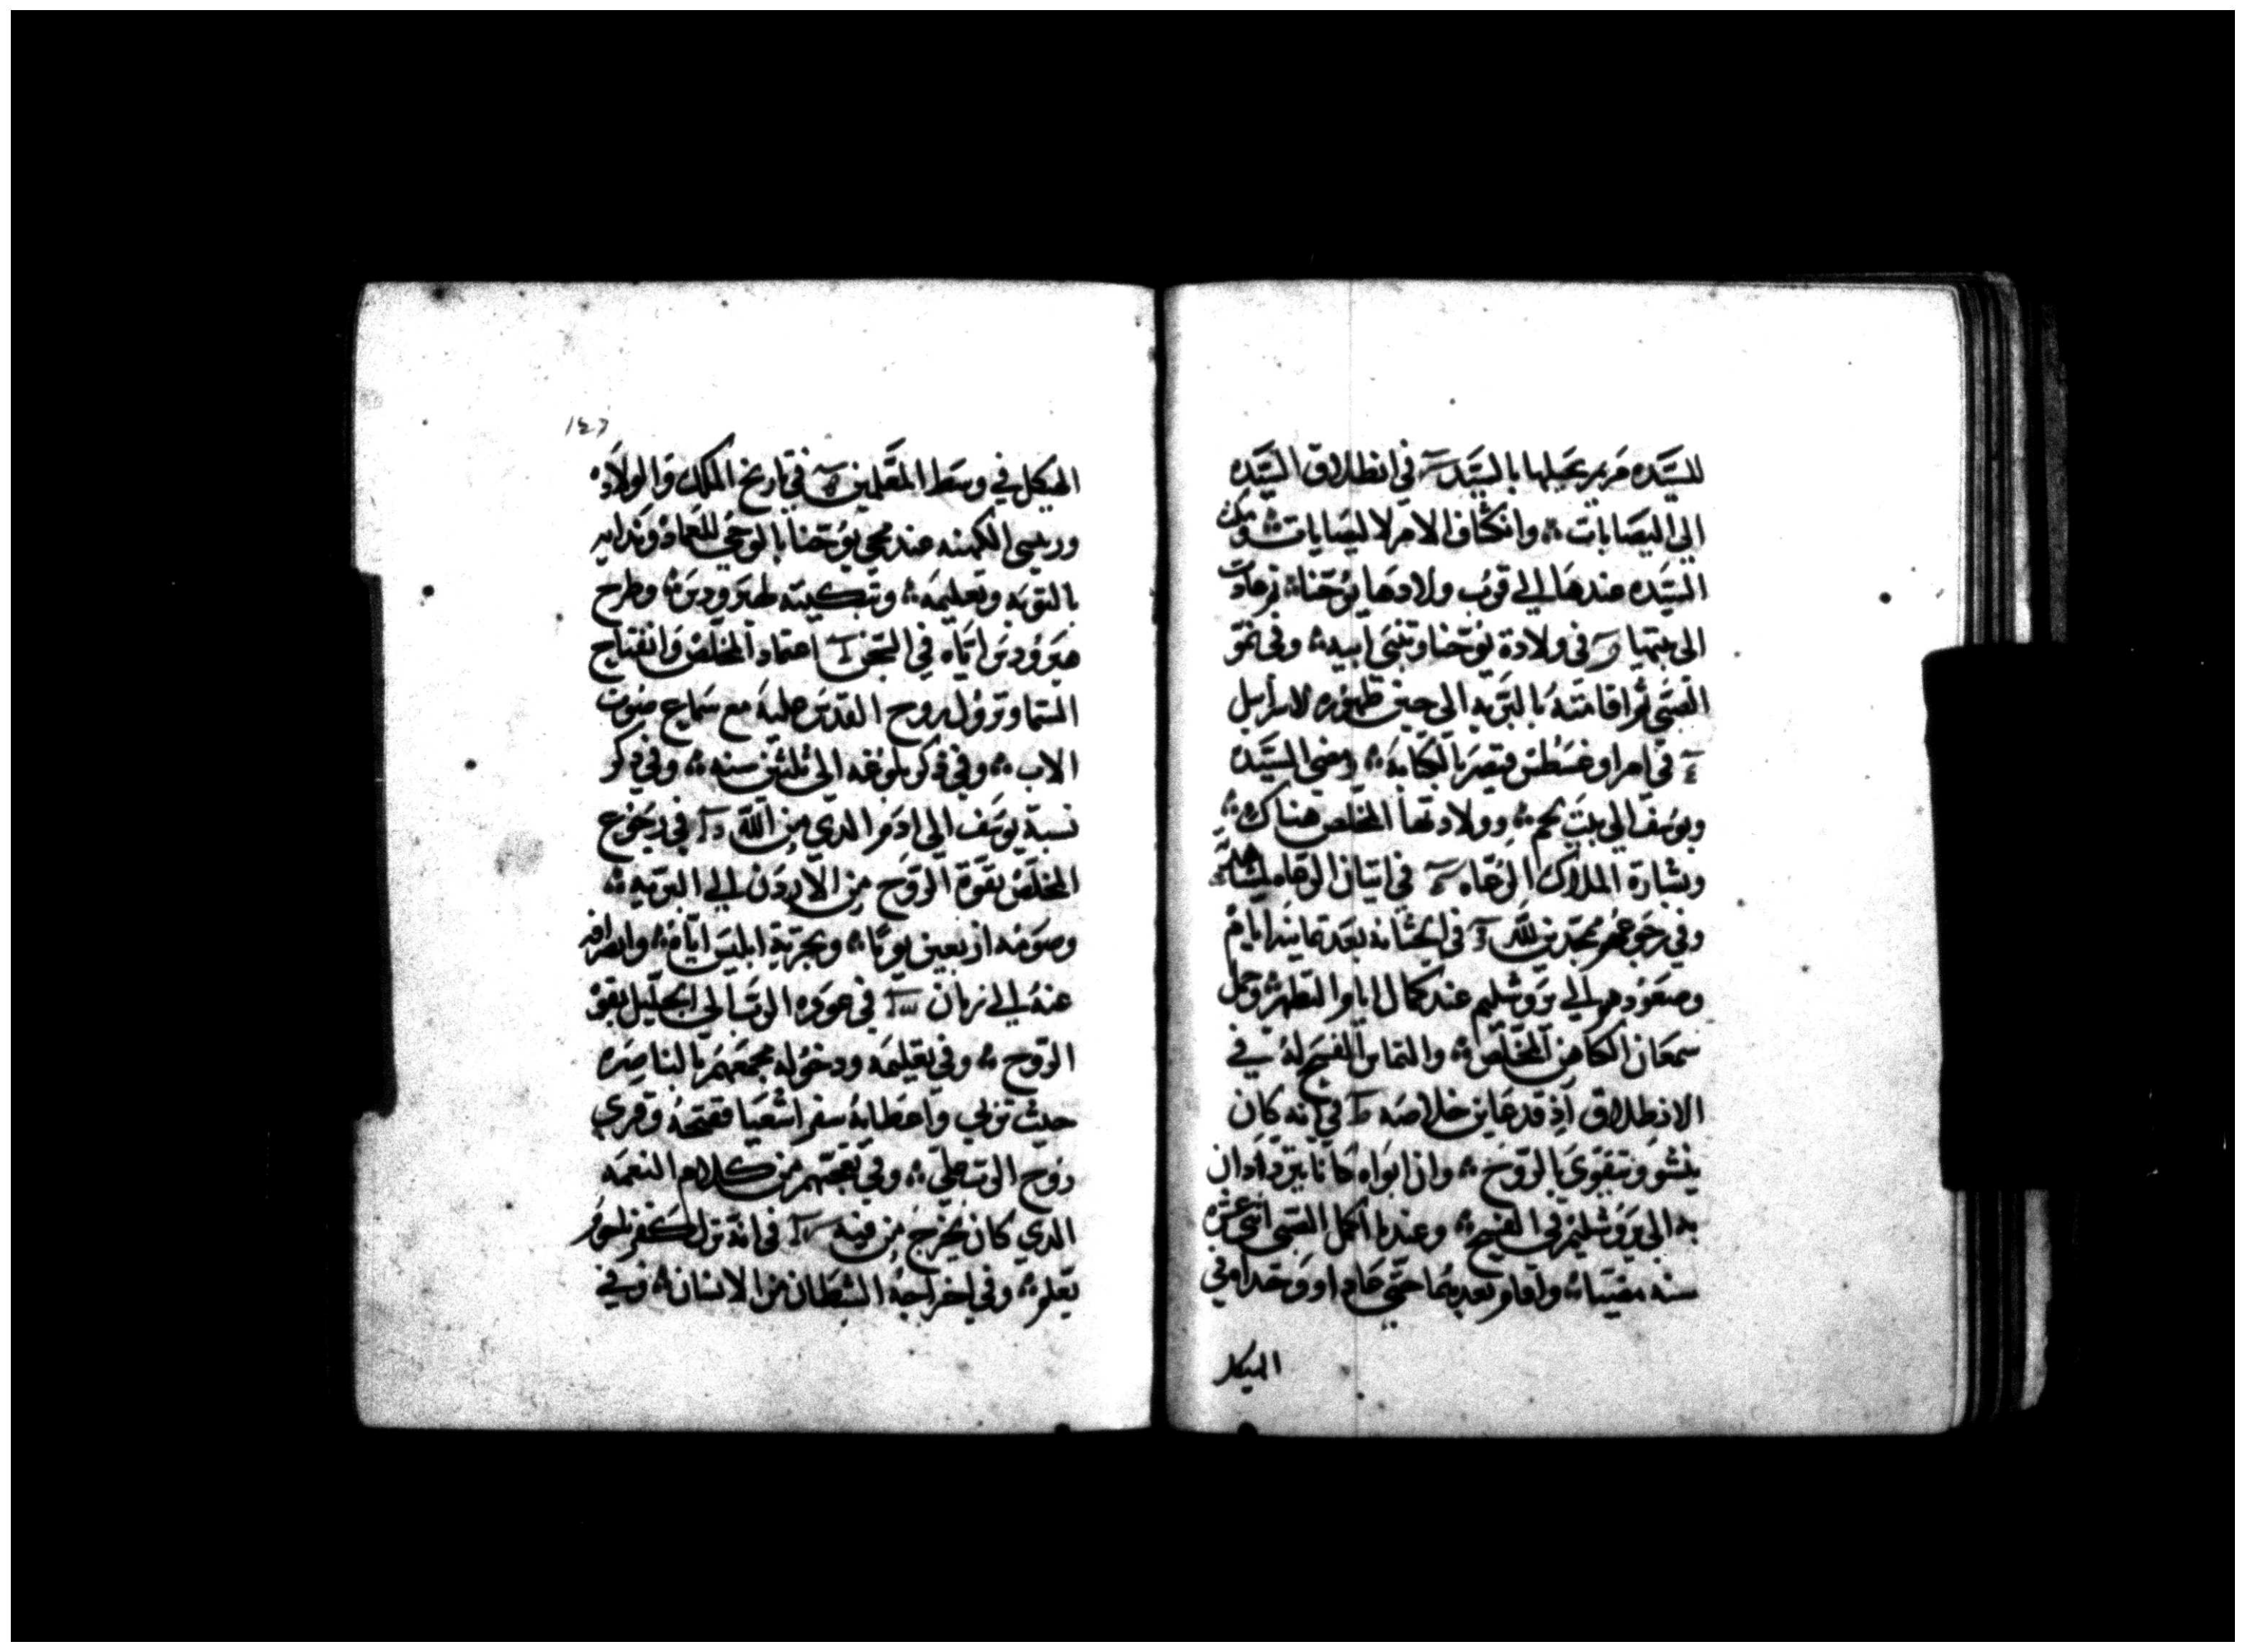 للسيده مريم بحبلها بالسيد في انطلاق السيده
الى اليصابات ۞ وانكشاف الامر لاليصابات ۞ ومكث
السيده عندها الي قرب ولادها يوحنا ۞ ثم عادت
الى بيتها في ولادة يوحنا وتنبى ابيه ۞ وفى نمو
الصبى ثم اقامته بالبريه الى حين ظهوره لاسرايل
في امر اوغسطس قيصر بالكتابه ۞ ومضى السيده
ويوسف الي بيت لحم ۞ وولادتها المخلص هناك ۞
وبشارة الملاك الرعاه في اتيان الرعاه
وفي رجوعهم ممجدين لله في الختانه بعد ثمانية ايام
وصعودهم الي يروشليم عند كمال ايام التطهير ۞ وحمل
سمعان الكاهن المخلص ۞ والتماس الفسح له في
الانطلاق اذ قد عاين خلاصه في انه كان
ينشو ويتقوى بالروح ۞ وان ابواه كانا يترددان
به الى يروشليم في الفسح ۞ وعندما اكمل الصبى اثنى عشره
سنه مضيا ۞ واقام بعدهما حتي عادا ووجداه في
الهيكل
١٤٦
الهيكل في وسط المعلمين في تاريخ الملك والولاه
وريسى الكهنه عند مجي يوحنا بالوحي للعماد وندايه
بالتوبه وتعليمه ۞ وتبكيته لهيرودس ۞ وطرح
هيرودس اياه في السجن اعتماد المخلص وانفتاح
السما ونزول روح القدس عليه مع سماع صوت
الاب ۞ وفي ذكر بلوغه الى ثلثين سنه ۞ وفي ذكر
نسبة يوسف الى ادم الدي من الله في رجوع
المخلص بقوة الروح من الاردن الي البريه ۞
وصومه اربعين يومًا ۞ وتجربة ابليس اياه ۞ وانصرافه
عنه الي زمان في عوده الرب الى الجليل بقوة
الروح ۞ وفي تعليمه ودخوله مجمعهم بالناصره
حيث تربي واعطايه سفر اشعيا ففتحه وقرى
روح الرب علي ۞ وفي تعجبهم من كلام النعمه
الدي كان يخرج من فيه في انه نزل كفرناحوم
يعلم ۞ وفي اخراجه الشيطان من الانسان ۞ وفي